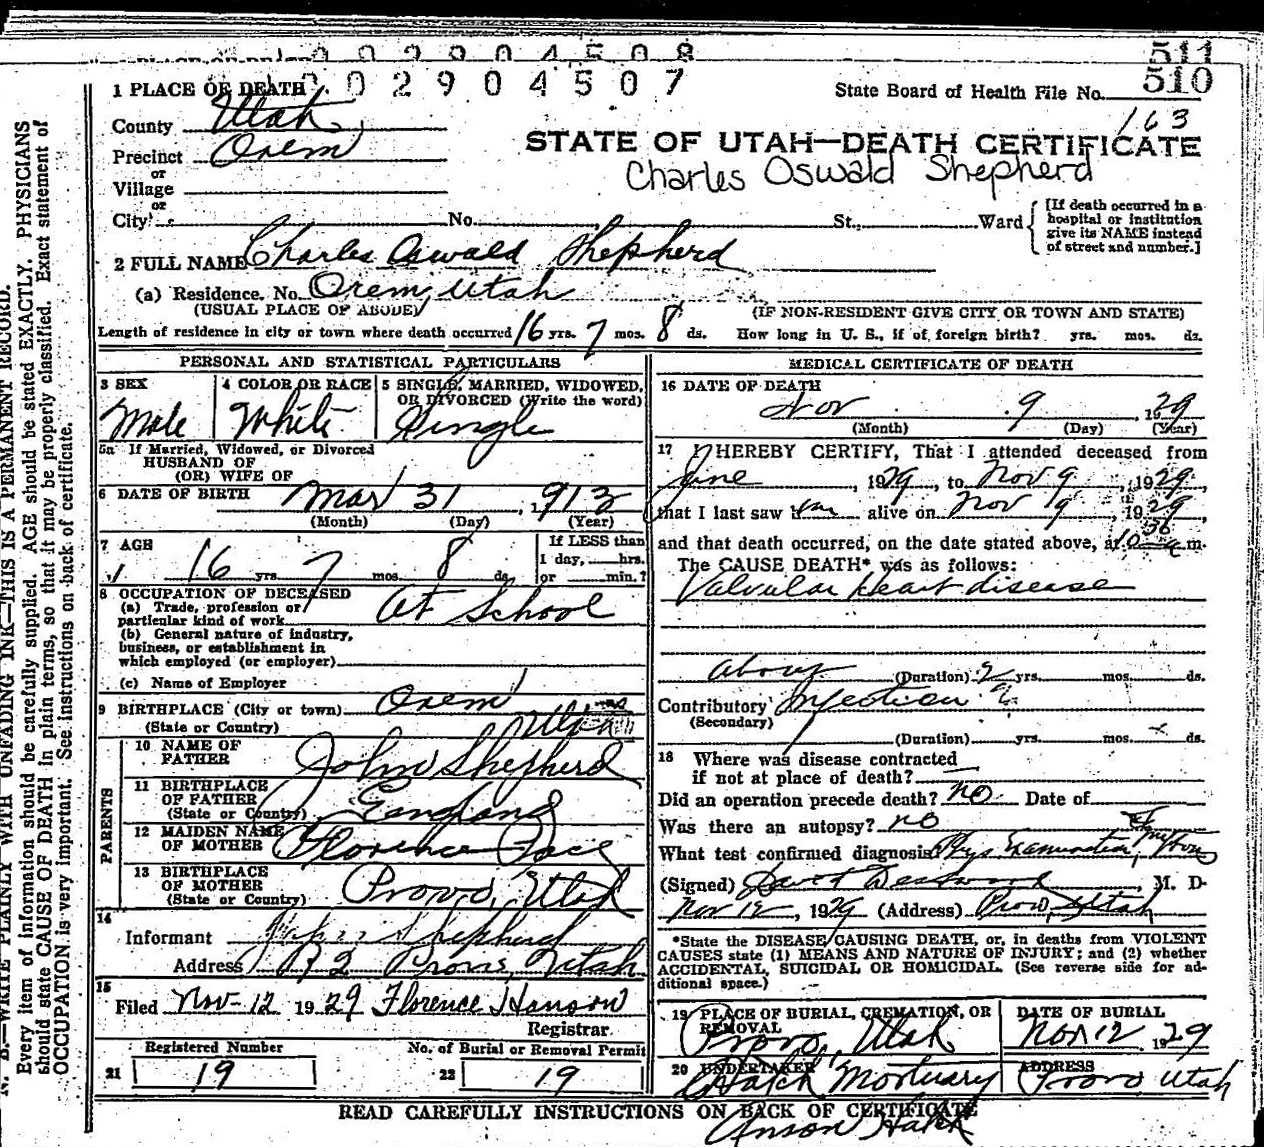 0 0 2 9 0 4 5 0 8
511
1 PLACE OF DEATH 0 0 2 9 0 4 5 0 7
State Board of Health File No. 510
163
County Utah
Precinct Orem
or
Village
or
City No. St., Ward
[If death occurred in a hospital or institution give its NAME instead of street and number.]
STATE OF UTAH—DEATH CERTIFICATE
Charles Oswald Shepherd
2 FULL NAME Charles Oswald Shepherd
(a) Residence. No. Orem, Utah
(USUAL PLACE OF ABODE) (IF NON-RESIDENT GIVE CITY OR TOWN AND STATE)
Length of residence in city or town where death occurred 16 yrs. 7 mos. 8 ds. How long in U. S., if of foreign birth? yrs. mos. ds.
PERSONAL AND STATISTICAL PARTICULARS
3 SEX 4 COLOR OR RACE 5 SINGLE, MARRIED, WIDOWED,
OR DIVORCED (Write the word)
Male White Single
5a If Married, Widowed, or Divorced
HUSBAND OF
(OR) WIFE OF
6 DATE OF BIRTH Mar 31, 1913
(Month) (Day) (Year)
7 AGE If LESS than
16 yrs. 7 mos. 8 ds. 1 day, hrs.
or min.?
8 OCCUPATION OF DECEASED
(a) Trade, profession or
particular kind of work At School
(b) General nature of industry,
business, or establishment in
which employed (or employer)
(c) Name of Employer
9 BIRTHPLACE (City or town) Orem
(State or Country) Utah
PARENTS
10 NAME OF
FATHER John Shepherd
11 BIRTHPLACE
OF FATHER
(State or Country) England
12 MAIDEN NAME
OF MOTHER Florence
13 BIRTHPLACE
OF MOTHER
(State or Country) Provo, Utah
14
Informant John Shepherd
Address R 2 Provo, Utah
15
Filed Nov-12 1929 Florence Hanson
Registrar.
Registered Number No. of Burial or Removal Permit
21 19 22 19
MEDICAL CERTIFICATE OF DEATH
16 DATE OF DEATH
Nov 9, 1929
(Month) (Day) (Year)
17 I HEREBY CERTIFY, That I attended deceased from
June, 1929, to Nov 9, 1929,
that I last saw him alive on Nov 9, 1929,
and that death occurred, on the date stated above, at 10 36 a m.
The CAUSE DEATH* was as follows:
Valvular heart disease
about (Duration) 2 yrs. mos. ds.
Contributory Infection
(Secondary)
(Duration) yrs. mos. ds.
18 Where was disease contracted
if not at place of death?
Did an operation precede death? no Date of
Was there an autopsy? no
What test confirmed diagnosis Phys Examination, Symptoms
(Signed) M. D.
Nov 12, 1929 (Address) Provo, Utah
*State the DISEASE CAUSING DEATH, or, in deaths from VIOLENT
CAUSES state (1) MEANS AND NATURE OF INJURY; and (2) whether
ACCIDENTAL, SUICIDAL OR HOMICIDAL. (See reverse side for ad-
ditional space.)
19 PLACE OF BURIAL, CREMATION, OR REMOVAL DATE OF BURIAL
Provo, Utah Nov 12 1929
20 UNDERTAKER ADDRESS
Hatch Mortuary Provo Utah
Anson Hatch
READ CAREFULLY INSTRUCTIONS ON BACK OF CERTIFICATE
N. B.—WRITE PLAINLY WITH UNFADING INK—THIS IS A PERMANENT RECORD.
Every item of information should be carefully supplied. AGE should be stated EXACTLY. PHYSICIANS
should state CAUSE OF DEATH in plain terms, so that it may be properly classified. Exact statement of
OCCUPATION is very important. See instructions on back of certificate.